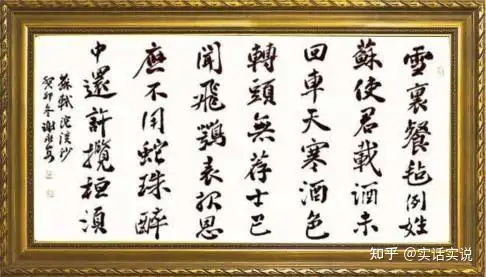 雪裏餐毡例姓
蘇使君載酒未
回車天寒酒色
轉頭無荐士已
聞飛鶚表報恩
應不用蛇珠醉
中還許攬桓須
蘇軾浣溪沙
癸卯冬
知乎 @实话实说